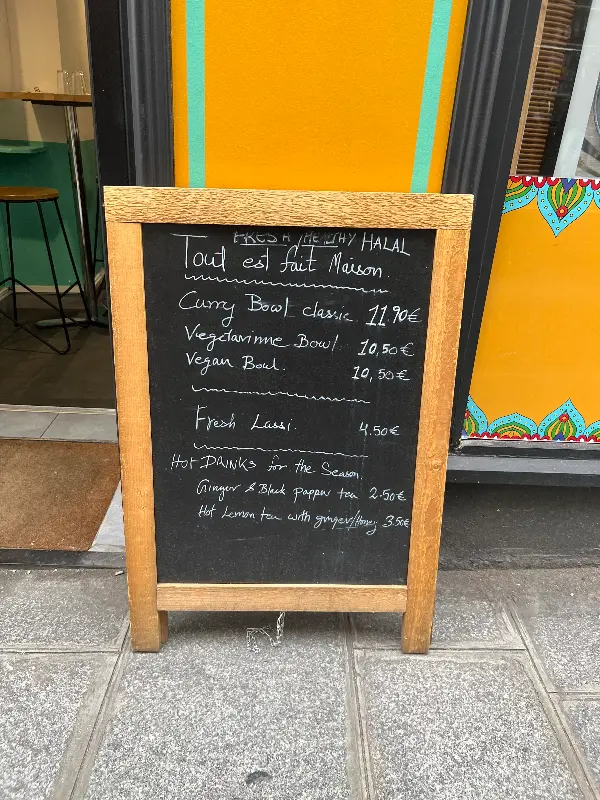 FRESH/HEALTHY HALAL
Tout est fait Maison.
Curry Bowl classic 11.90€
Vegetarinne Bowl. 10,50€
Vegan Bowl. 10,50€
Fresh Lassi. 4.50€
Hot DRINKS for the Season
Ginger & Black papper tea 2.50€
Hot Lemon tea with ginger/Honey 3.50€